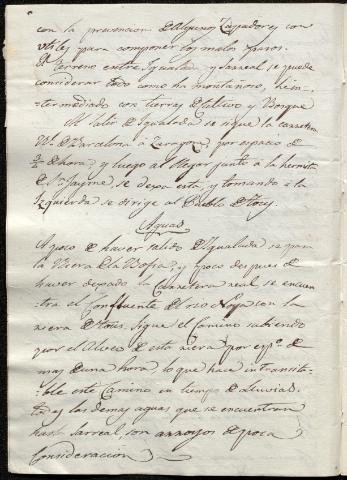 con la prevencion de algunos Zapadores con
utiles para componer los malos pasos.
El terreno entre Igualada y Sarreal se puede
considerar todo como ha montanoso, he in-
termediado con tierras de Cultivo y Bosque
Al Salir de Igualada se sigue la carretera
Rl. de Barcelona a Zaragoza, por espacio de
de hora, y luego al llegar junto a la hermita
de Sn. Jayme, se deja esta, y tomando a la
Izquierda se dirige al Pueblo de Tous.
Aguas
A poco de haver salido de Igualada se pasa
la Riera de la Bofia, y a poco despues de
haver dejado la Carretera real se encuen-
tra el Confluente del rio Noya con la
riera de Tous. Sigue el Camino subiendo
por el Alveo de esta riera por espo. de
mas de una hora, lo que hace intransita-
ble este Camino en tiempo de lluvias.
y las demas aguas que se encuentran
hasta Sarreal, son arroyos de poca
Consideracion